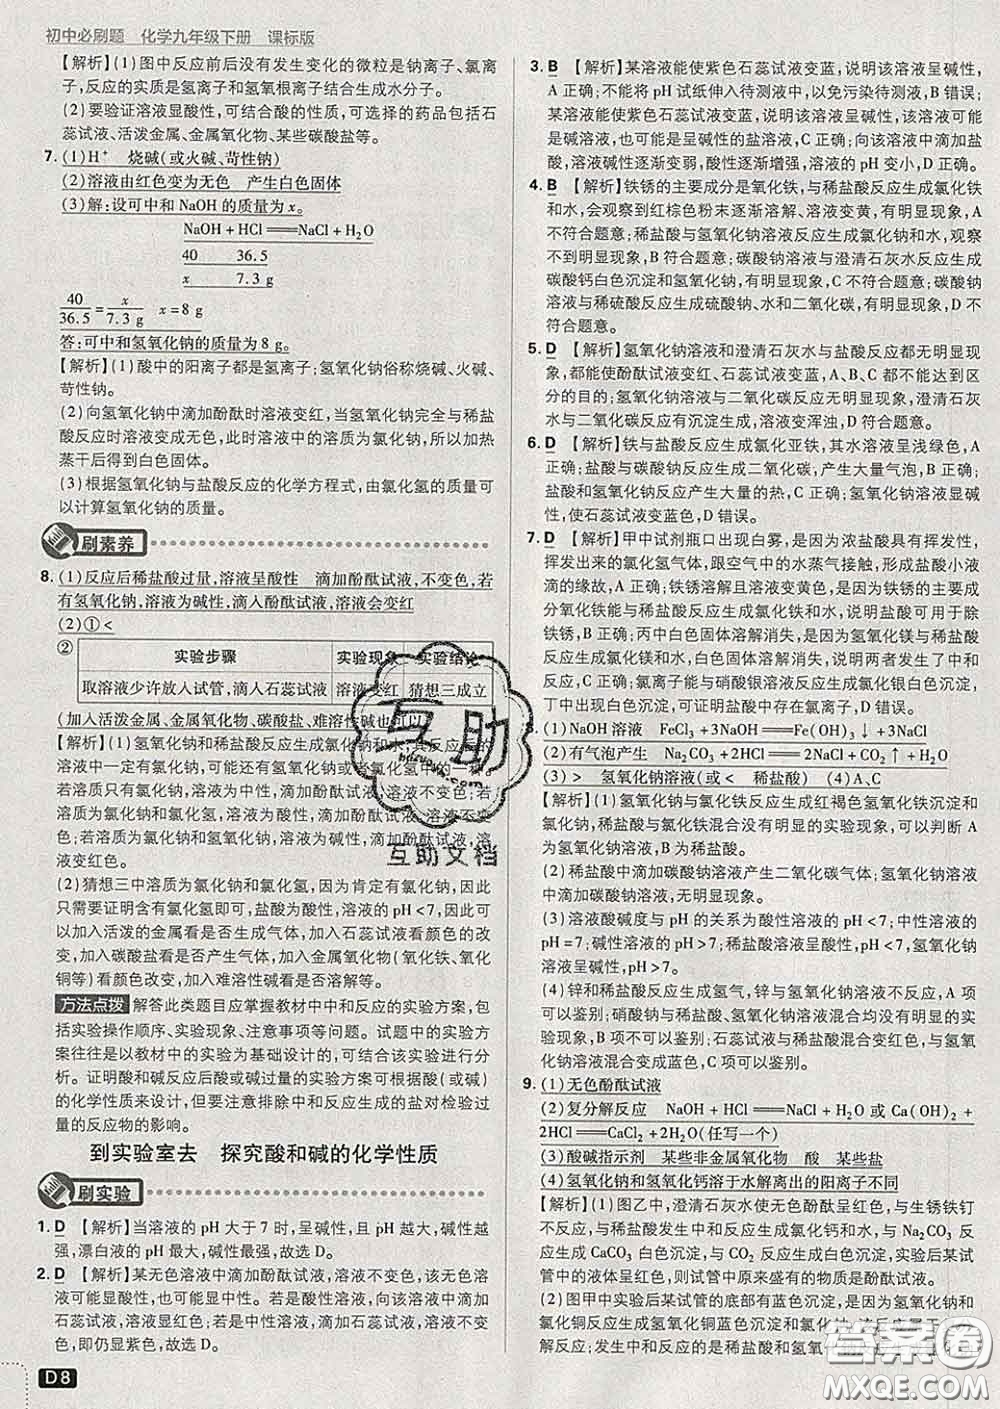 初中必刷题 化学九年级下册 课标版
【解析】(1)图中反应前后没有发生变化的微粒是钠离子、氯离
子,反应的实质是氢离子和氢氧根离子结合生成水分子。
(2)要验证溶液显酸性,可结合酸的性质,可选择的药品包括石
蕊试液、活泼金属、金属氧化物、某些碳酸盐等。
7. (1)H⁺ 烧碱(或火碱、苛性钠)
(2)溶液由红色变为无色 产生白色固体
(3)解:设可中和NaOH的质量为x。
NaOH + HCl══NaCl + H₂O
40 36.5
x 7.3 g
40/36.5 = x/7.3 g x = 8 g
答:可中和氢氧化钠的质量为8 g。
【解析】(1)酸中的阳离子都是氢离子;氢氧化钠俗称烧碱、火碱、
苛性钠。
(2)向氢氧化钠中滴加酚酞时溶液变红,当氢氧化钠完全与稀盐
酸反应时溶液变成无色,此时溶液中的溶质为氯化钠,所以加热
蒸干后得到白色固体。
(3)根据氢氧化钠与盐酸反应的化学方程式,由氯化氢的质量可
以计算氢氧化钠的质量。
刷素养
8. (1)反应后稀盐酸过量,溶液呈酸性 滴加酚酞试液,不变色,若
有氢氧化钠,溶液为碱性,滴入酚酞试液,溶液会变红
(2)①<
②
实验步骤 实验现象 实验结论
取溶液少许放入试管,滴入石蕊试液 溶液变红 猜想三成立
(加入活泼金属、金属氧化物、碳酸盐、难溶性碱也可以)
【解析】(1)氢氧化钠和稀盐酸反应生成氯化钠和水,其反应后的
溶液中一定有氯化钠,可能还有氢氧化钠或者氯化氢中的一种。
若溶质只有氯化钠,溶液为中性,滴加酚酞试液,溶液不变色;若
溶质为氯化钠和氯化氢,溶液为酸性,滴加酚酞试液,溶液不变
色;若溶质为氯化钠和氢氧化钠,溶液为碱性,滴加酚酞试液,溶
液变红色。
(2)猜想三中溶质为氯化钠和氯化氢,因为肯定有氯化钠,因此
只需要证明含有氯化氢即可,盐酸为酸性,溶液的pH<7,所以可
以加入活泼的金属看是否生成气体,加入石蕊试液看颜色的改
变,加入碳酸盐看是否产生气体,加入金属氧化物(氧化铁、氧化
铜等)看颜色改变,加入难溶性碱看是否溶解等。
方法点拨 解答此类题目应掌握教材中中和反应的实验方案,包
括实验操作顺序、实验现象、注意事项等问题。试题中的实验方
案往往是以教材中的实验为基础设计的,可结合该实验进行分
析。证明酸和碱反应后酸或碱过量的实验方案可根据酸(或碱)
的化学性质来设计,但要注意排除中和反应生成的盐对检验过
量的反应物的影响。
到实验室去 探究酸和碱的化学性质
刷实验
1. D 【解析】当溶液的pH大于7时,呈碱性,且pH越大,碱性越
强,漂白液的pH最大,碱性最强,故选D。
2. D 【解析】某无色溶液中滴加酚酞试液,溶液不变色,该无色溶
液可能显酸性,也可能显中性。若是酸性溶液,向该溶液中滴加
石蕊试液,溶液变红色;若是中性溶液,滴加石蕊试液,溶液不变
色,即仍显紫色,故选D。
D8
3. B 【解析】某溶液能使紫色石蕊试液变蓝,说明该溶液呈碱性,
A正确;不能将pH试纸伸入待测液中,以免污染待测液,B错误;
某溶液能使紫色石蕊试液变蓝,说明该溶液呈碱性,该溶液可能
是碱溶液,也可能是呈碱性的盐溶液,C正确;向该溶液中滴加盐
酸,溶液碱性逐渐变弱,酸性逐渐增强,溶液的pH变小,D正确。
4. B 【解析】铁锈的主要成分是氧化铁,与稀盐酸反应生成氯化铁
和水,会观察到红棕色粉末逐渐溶解、溶液变黄,有明显现象,A
不符合题意;稀盐酸与氢氧化钠溶液反应生成氯化钠和水,观察
不到明显现象,B符合题意;碳酸钠溶液与澄清石灰水反应生成
碳酸钙白色沉淀和氢氧化钠,有明显现象,C不符合题意;碳酸钠
溶液与稀硫酸反应生成硫酸钠、水和二氧化碳,有明显现象,D不
符合题意。
5. D 【解析】氢氧化钠溶液和澄清石灰水与盐酸反应都无明显现
象,都能使酚酞试液变红、石蕊试液变蓝,A、B、C都不能达到区
分的目的;氢氧化钠溶液与二氧化碳反应无明显现象,石灰水与
二氧化碳反应有沉淀生成,溶液变浑浊,D符合题意。
6. D 【解析】铁与盐酸反应生成氯化亚铁,其水溶液呈浅绿色,A
正确;盐酸与碳酸钠反应生成二氧化碳,产生大量气泡,B正确;
盐酸和氢氧化钠反应产生大量的热,C正确;氢氧化钠溶液显碱
性,使石蕊试液变蓝色,D错误。
7. D 【解析】甲中试剂瓶口出现白雾,是由于浓盐酸具有挥发性,
挥发出来的氯化氢气体,跟空气中的水蒸气接触,形成盐酸小液
滴的缘故,A正确;铁锈溶解且溶液变黄色,是因为铁锈的主要成
分氧化铁能与稀盐酸反应生成氯化铁和水,说明盐酸可用于除
铁锈,B正确;氢氧化镁与稀盐酸反应生成氯化镁和水,丙中出现
白色固体溶解消失,溶液变澄清,说明盐酸与氢氧化镁发生反应,
C正确;氯离子能与硝酸银溶液反应生成氯化银白色沉淀,
丁中出现白色沉淀,可证明盐酸中存在氯离子,D错误。
(1)NaOH溶液 FeCl₃ + 3NaOH══Fe(OH)₃↓ + 3NaCl
(2)有气泡产生 Na₂CO₃ + 2HCl══2NaCl + CO₂↑ + H₂O
(3)> 氢氧化钠溶液(或< 稀盐酸) (4)A、C
【解析】(1)氢氧化钠与氯化铁反应生成红褐色氢氧化铁沉淀和
氯化钠,稀盐酸与氯化铁混合没有明显的实验现象,可以判断A
为氢氧化钠,B为稀盐酸。
(2)稀盐酸中滴加碳酸钠溶液产生二氧化碳气体;氢氧化钠溶液
中滴加碳酸钠溶液,无明显现象。
(3)溶液酸碱度与pH的关系为酸性溶液的pH<7;中性溶液的
pH=7;碱性溶液的pH>7;稀盐酸溶液呈酸性,pH<7,氢氧化钠
溶液呈碱性,pH>7。
(4)锌和稀盐酸生成氢气,锌与氢氧化钠溶液不反应,A项
可以鉴别;硝酸钠与稀盐酸、氢氧化钠溶液混合均无
现象,B项不可以鉴别;石蕊试液与盐酸混合变红色,与氢氧
化钠溶液混合变成蓝色,C项可以鉴别。
9. (1)无色酚酞试液
(2)复分解反应 NaOH + HCl══NaCl + H₂O或Ca(OH)₂ +
2HCl══CaCl₂ + 2H₂O(任写一个)
(3)酸碱指示剂 某些非金属氧化物 酸 某些盐
(4)氢氧化钠和氢氧化钙溶于水解离出的阳离子不同
【解析】(1)图乙中,澄清石灰水使无色酚酞变红色,与生锈铁钉
不反应,与稀盐酸发生中和反应生成氯化钙和水,与Na₂CO₃反
应生成CaCO₃白色沉淀,与CO₂反应生成白色沉淀,实验后某试
管中的液体呈红色,则试管中原来盛有的物质是酚酞试液。
(2)图甲中实验后某试管的底部有蓝色沉淀,是因为氢氧化钠和
氯化铜反应生成氢氧化铜蓝色沉淀和氯化钠,
解反应;发生中和反应的
互助
互助文档
答案圈
MXQE.COM